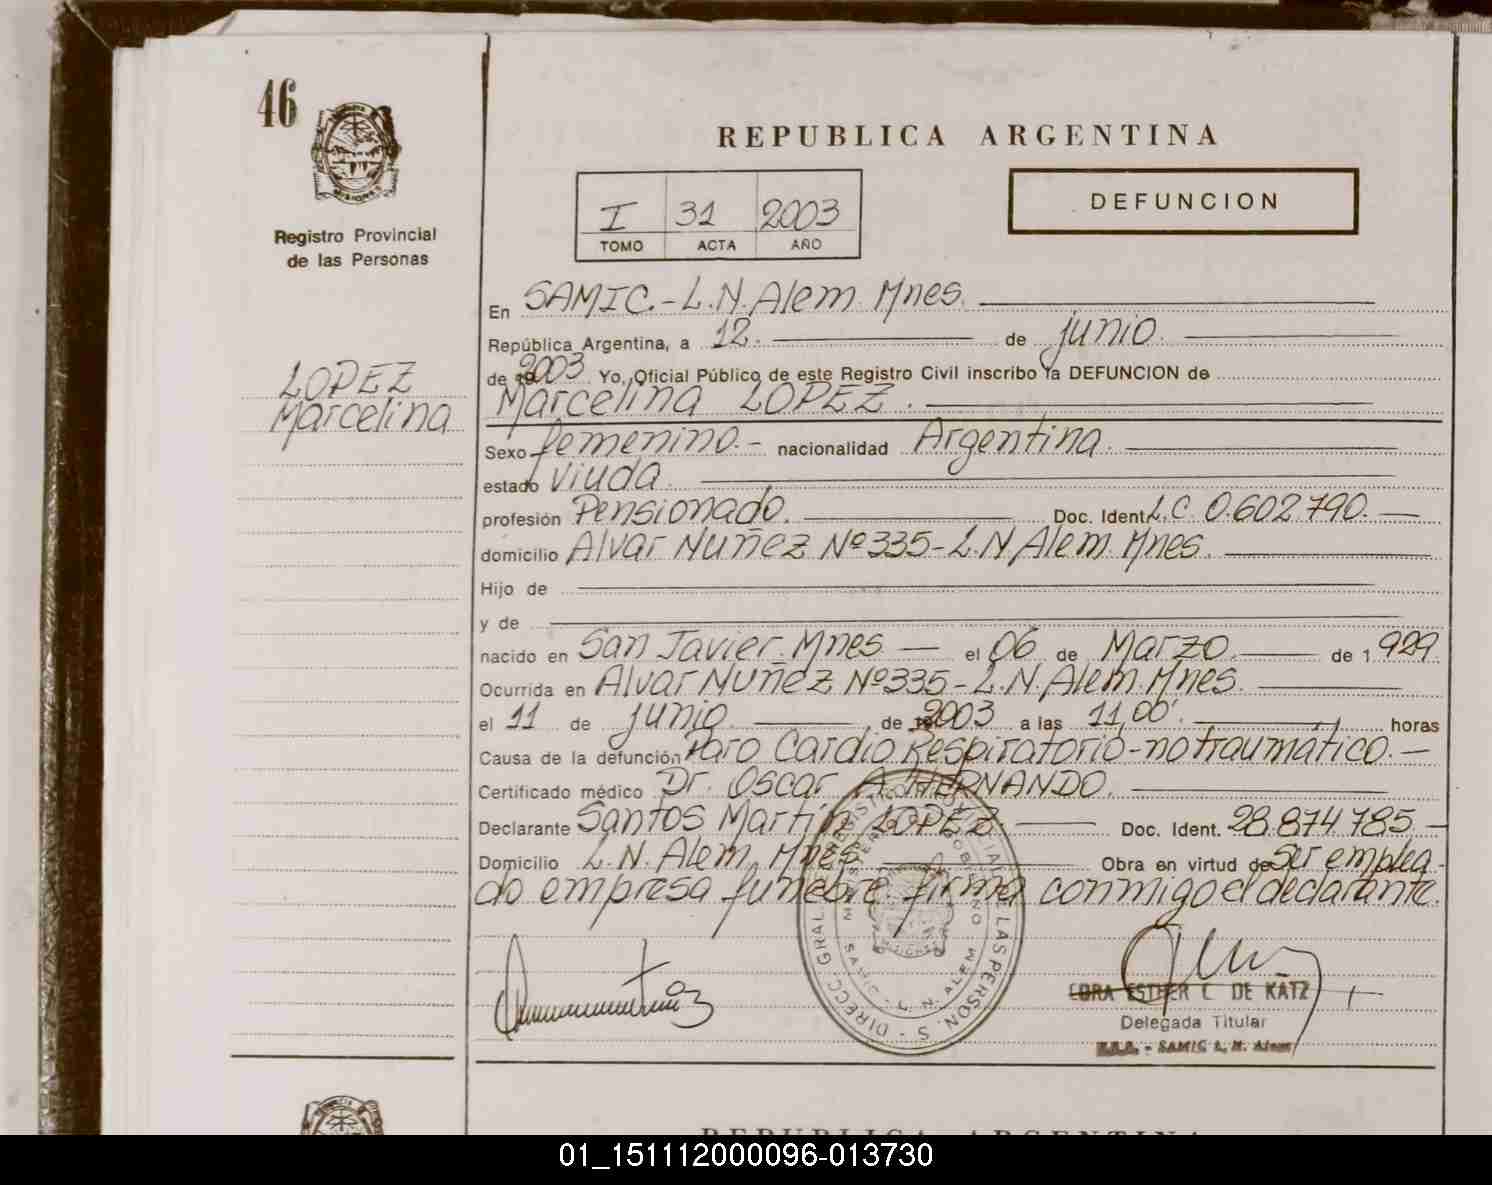 46
REPUBLICA ARGENTINA
I 31 2003
TOMO ACTA AÑO
DEFUNCION
Registro Provincial
de las Personas
LOPEZ
Marcelina
En SAMIC.-L.N.Alem. Mnes.
República Argentina, a 12. de junio.
de 2003 Yo, Oficial Público de este Registro Civil inscribo la DEFUNCION de
Marcelina LOPEZ.
Sexo femenino.- nacionalidad Argentina.
estado viuda.
profesión Pensionado. Doc. Ident. L.C. 0.602.790.
domicilio Alvar Nuñez Nº335-L.N.Alem. Mnes.
Hijo de
y de
nacido en San Javier. Mnes. el 06 de Marzo. de 1 929.
Ocurrida en Alvar Nuñez Nº335-L.N.Alem. Mnes.
el 11 de junio. de 2003 a las 11,00'. horas
Causa de la defunción Paro Cardio Respiratorio-no traumático.-
Certificado médico Dr. Oscar A. HERNANDO.
Declarante Santos Martín LOPEZ Doc. Ident. 28.874.785-
Domicilio L.N. Alem, Mnes. Obra en virtud de Ser emplea-
do empresa funebre. firma conmigo el declarante.
DIRECC. GRAL. REGISTRO PROVINCIAL DE LAS PERSON. S -
MINISTERIO DE GOBIERNO
SAMIC - L. N. ALEM
MISIONES
CORA ESTHER C. DE KATZ
Delegada Titular
- SAMIC L. N. Alem
REPUBLICA ARGENTINA
01_151112000096-013730